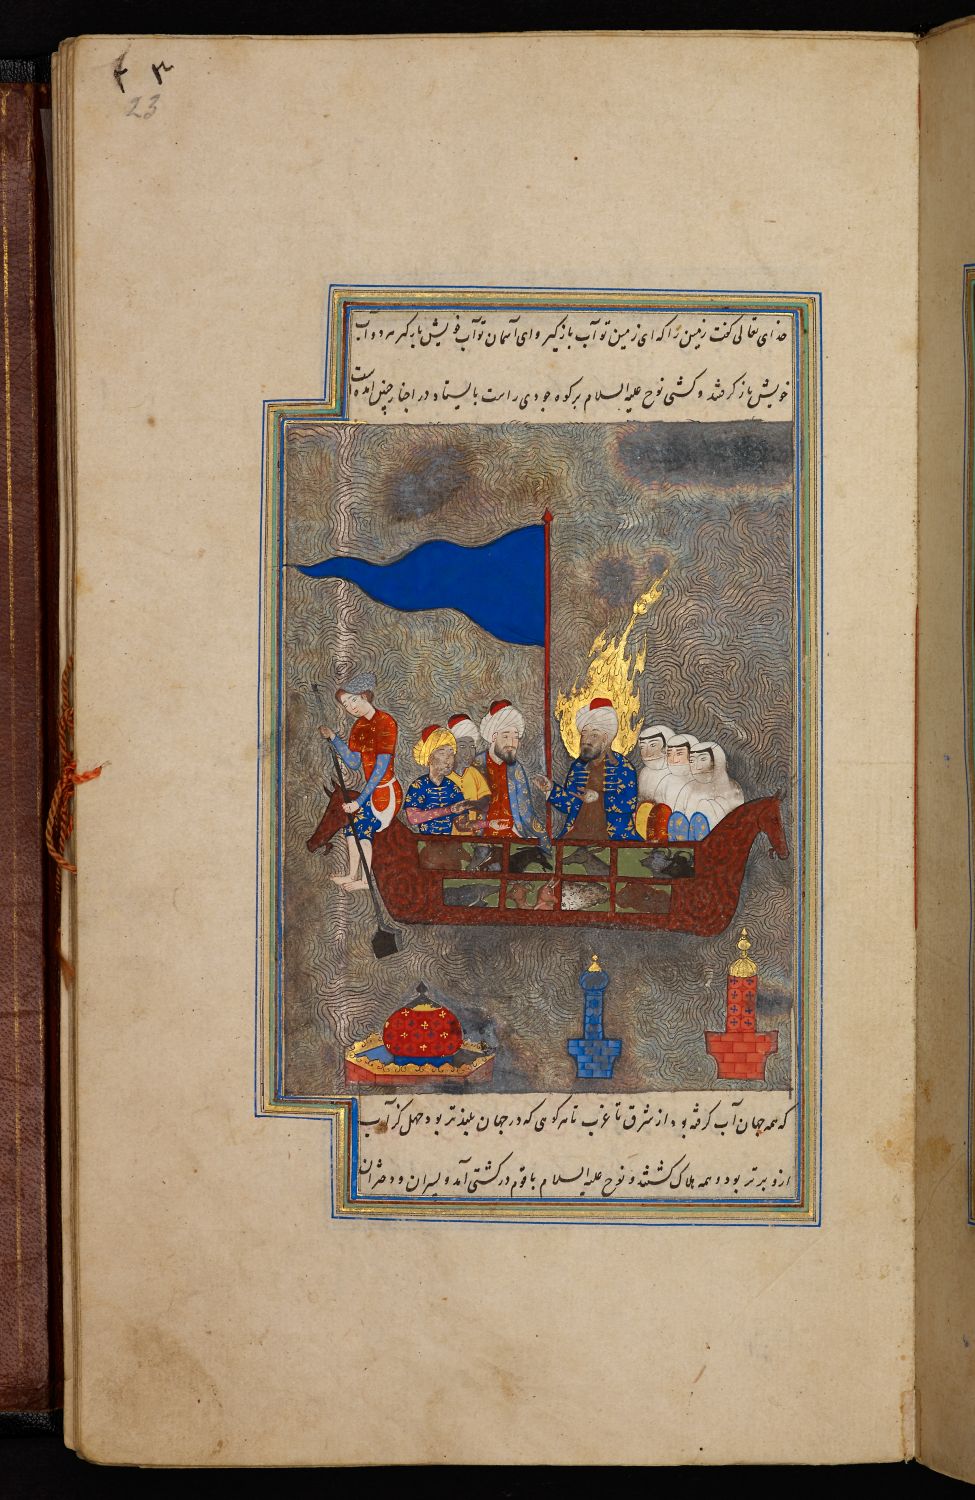 ۲۳
23
خدای تعالی گفت زمین را که ای زمین تو آب بازگیر و ای آسمان تو آب خویش بازگیر هر دو آب
خویش باز گرفتند و کشتی نوح علیه السلام بر کوه جودی راست بایستاد در اخبار چنین آمده است
که همه جهان آب گرفته بود از شرق تا غرب تا هر کوهی که در جهان بلندتر بود چهل گز آب
ازو برتر بود و همه هلاک گشتند و نوح علیه السلام با قوم در کشتی آمد و پسران و دختران